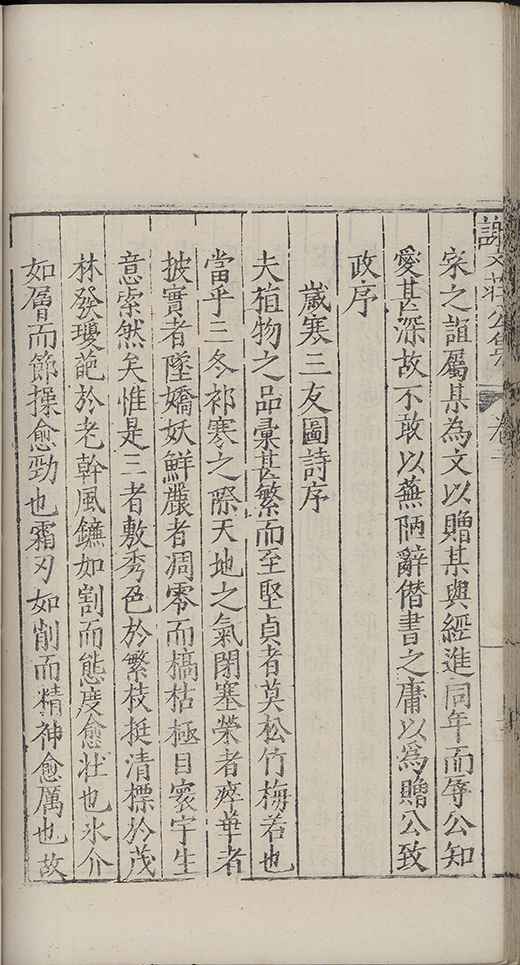 謝文莊公集 卷二
家之誼屬某為文以贈某與經進同年而辱公知
愛甚深故不敢以蕪陋辭僭書之庸以為贈公致
政序
歲寒三友圖詩序
夫植物之品彙甚繁而至堅貞者莫松竹梅若也
當乎三冬祁寒之際天地之氣閉塞榮者瘁華者
披實者墜嬌妖鮮麗者凋零而槁枯極目寰宇生
意索然矣惟是三者敷秀色於繁枝挺清標於茂
林發瓊葩於老幹風鑣如割而態度愈壯也氷介
如層而節操愈勁也霜刃如削而精神愈厲也故